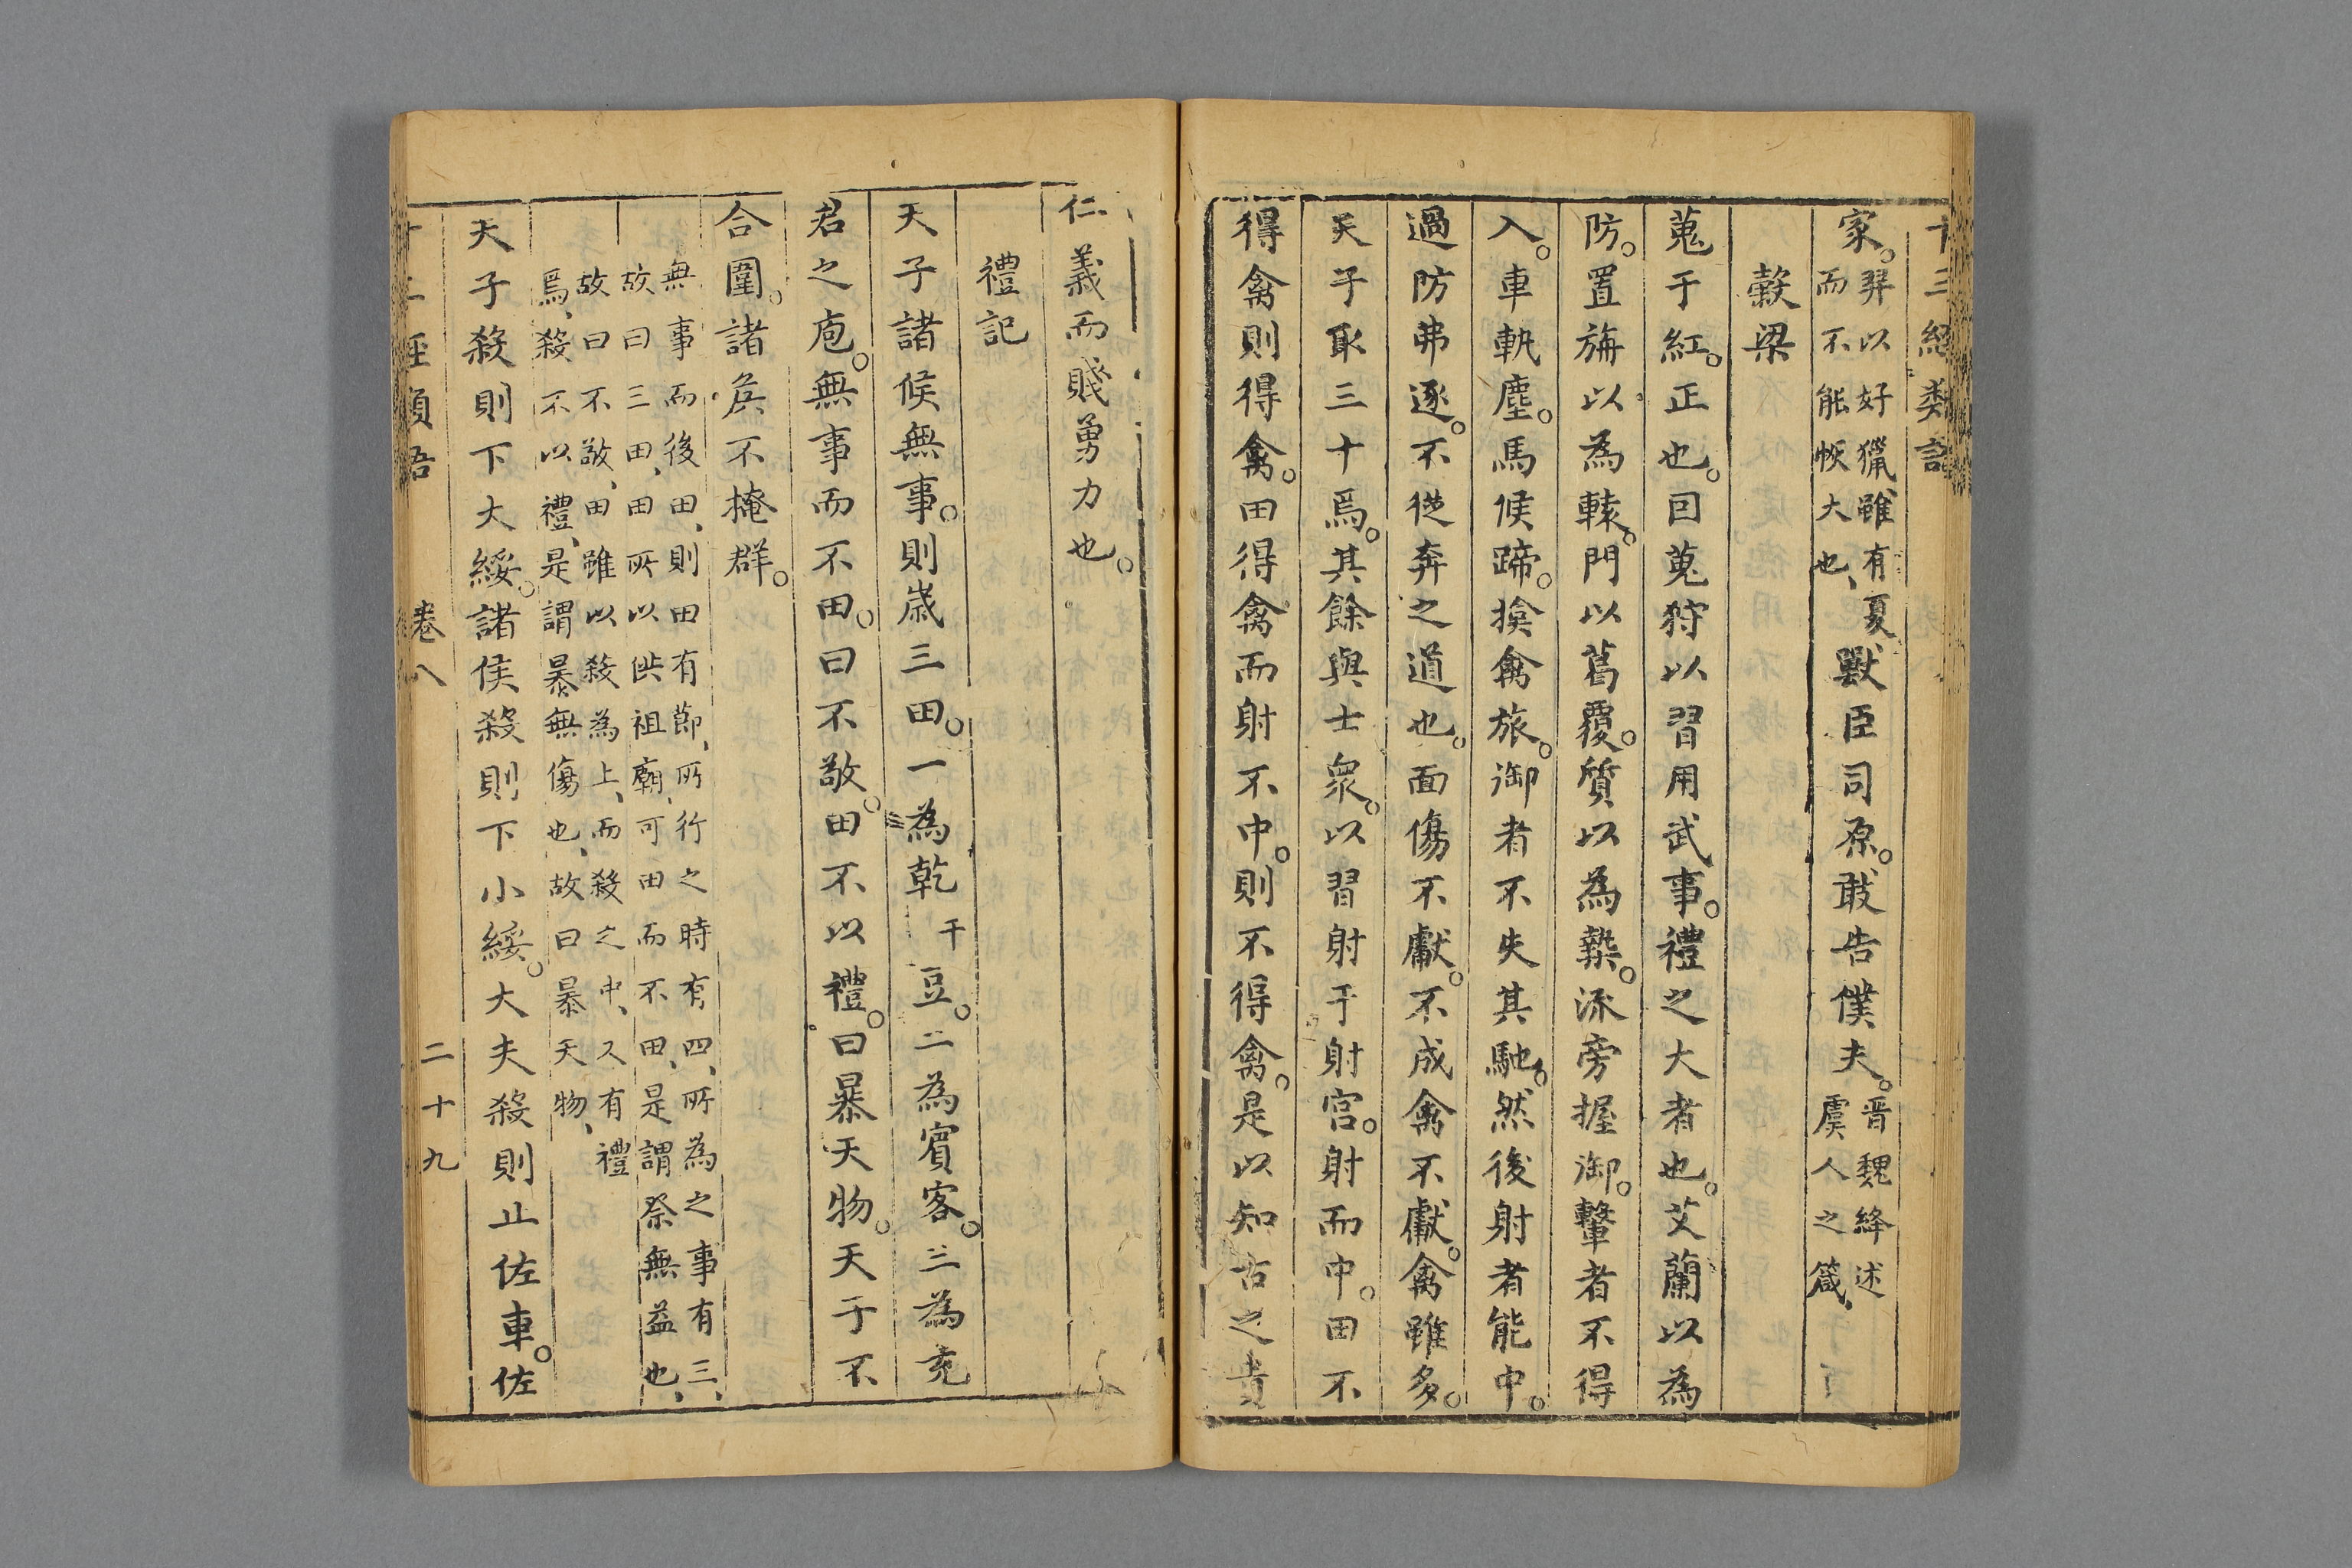 十三經類語
家。羿以好獵、雖有夏而不能恢大也、獸臣司原。敢告僕夫。晋魏絳述虞人之箴、
穀梁
蒐于紅。正也。因蒐狩以習用武事。禮之大者也。艾蘭以為
防。置旃以為轅。門以葛覆。質以為槷。流旁握御。轚者不得
入。車軌塵。馬候蹄。揜禽旅。御者不失其馳。然後射者能中。
過防弗逐。不從奔之道也。面傷不獻。不成禽不獻。禽雖多。
天子取三十焉。其餘與士衆。以習射于射宫。射而中。田不
得禽則得禽。田得禽而射不中。則不得禽。是以知古之貴
仁義而賤勇力也。
禮記
天子諸侯無事。則歲三田。一為乾干豆。二為賓客。三為充
君之庖。無事而不田。曰不敬。田不以禮。曰暴天物。天子不
合圍。諸侯不掩群。
無事而後田、則田有節、所行之時有四、所為之事有三、
故曰三田、田所以供祖廟、可田而不田、是謂祭無益也、
故曰不敬、田雖以殺為上、而殺之中、又有禮
焉、殺不以禮、是謂暴無傷也、故曰暴天物、
天子殺則下大綏。諸侯殺則下小綏。大夫殺則止佐車。佐
十三經類語 卷八 二十九